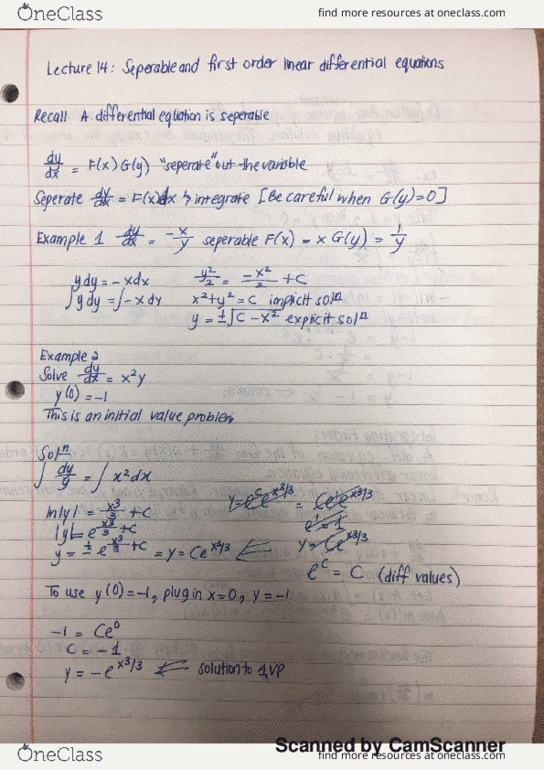 OneClass
find more resources at oneclass.com
Lecture 14: Seperable and first order linear differential equations
Recall A differential equation is seperable
dy/dx = F(x) G(y) "seperate" out the variable
Seperate dy/dx = F(x)dx & integrate [Be careful when G(y)=0]
Example 1 dy/dx = -x/y seperable F(x) = x G(y) = 1/y
ydy = -xdx
∫ydy = ∫-xdy
y²/2 = -x²/2 + C
x²+y² = C implicit solⁿ
y = ±√C-x² explicit solⁿ
Example 2
Solve dy/dx = x²y
y(0) = -1
This is an initial value problem
Solⁿ
∫ dy/y = ∫ x²dx
ln|y| = x³/3 + C
|y| = e^x³/3 + C
y = ± e^x³/3 + C = y = Ce^x³/3
e^C = C (diff values)
To use y(0) = -1, plug in x=0, y=-1
-1 = Ce⁰
C = -1
y = -e^x³/3 solution to IVP
Scanned by CamScanner
OneClass
find more resources at oneclass.com